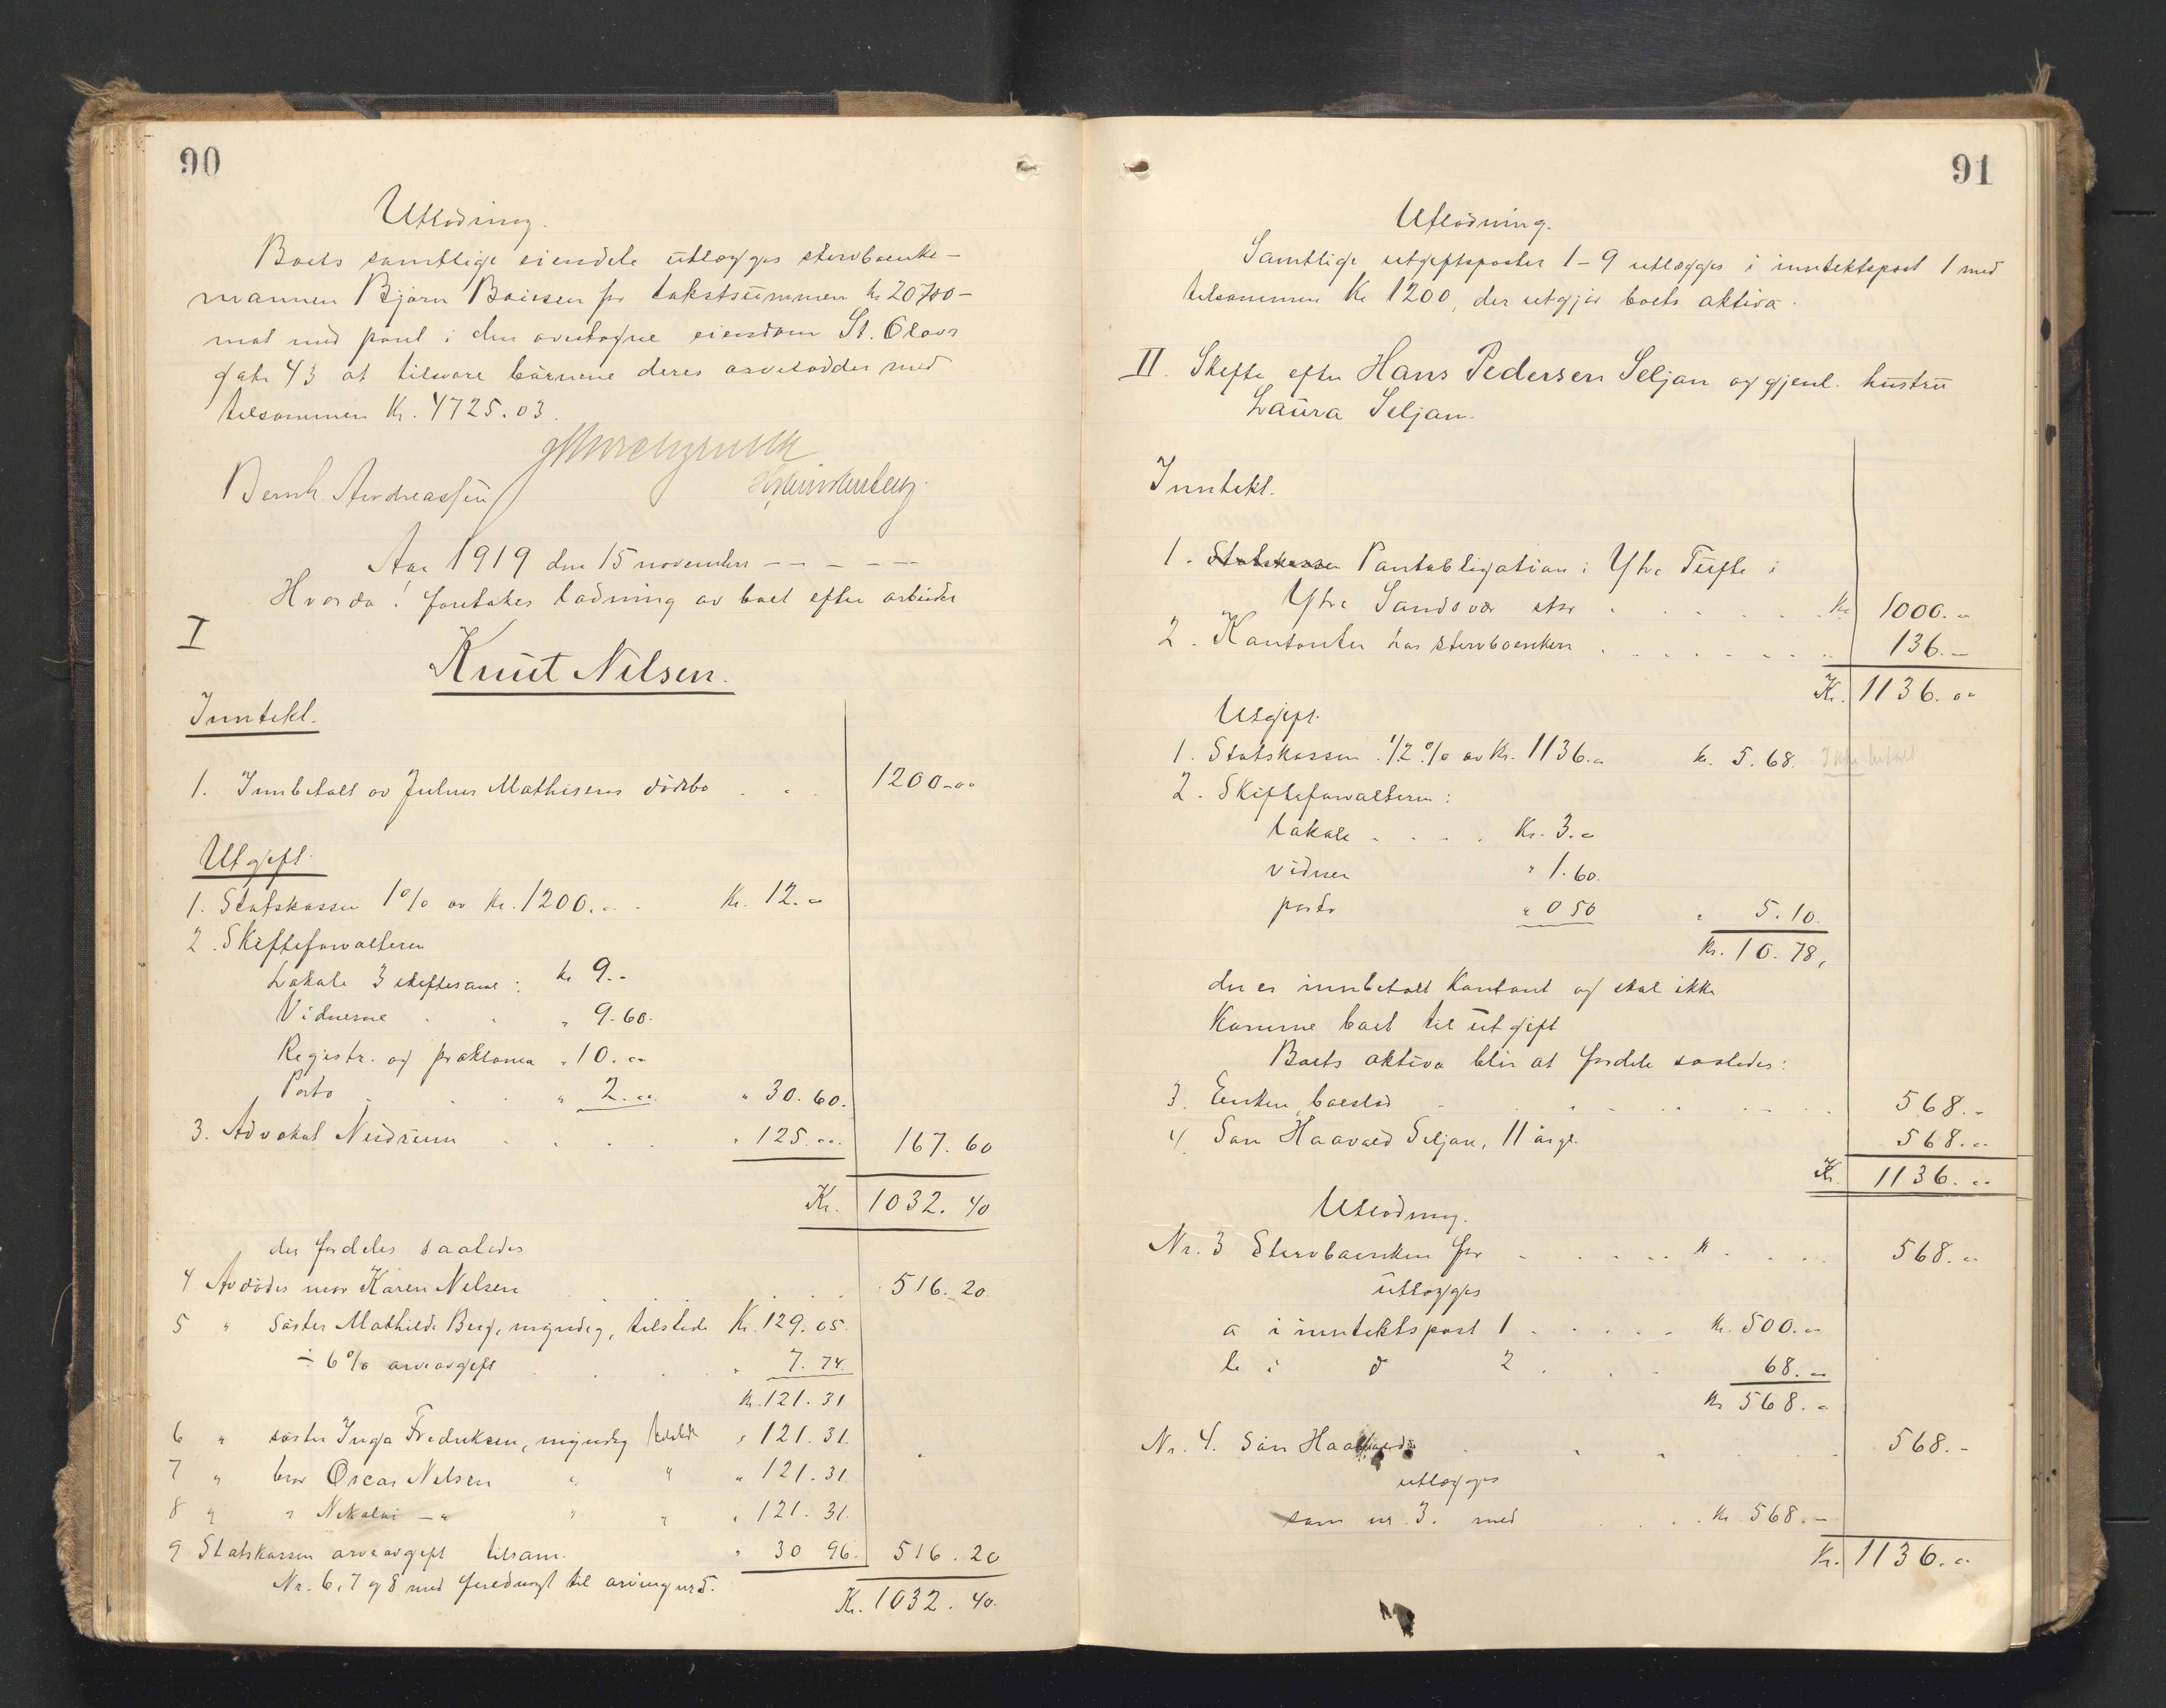 90
Utlodning.
Boets samtlige eiendele utlægges stervboenke-
mannen Bjørn Boiesen for takstsummen kr 20700-
mot med pant i den overtagne eiendom St. Olavs
gate 43 at tilsvare børnene deres arvelodder med
tilsammen Kr. 4725.03.
Bernh. Andreassen
Aar 1919 den 15 november - - - - -
Hvorda! foretokes lodning av boet efter arbeider
I
Knut Nilsen.
Inntekt.
1. Innbetalt av Julius Mathisens dødsbo . . . 1200.00
Utgift.
1. Statskassen 1% av Kr. 1200.00 - Kr. 12.00
2. Skifteforvalteren
Lokale 3 skiftesaml: kr 9.-
Vidnerne . . " 9.60.
Registr. og proklama " 10.00
Porto . . . " 2.00 " 30.60.
3. Advokat Nidrum . . . . " 125.00. 167.60
Kr. 1032.40
der fordeles saaledes
4 Avdødes mor Karen Nilsen . . . . 516.20
5 " søster Mathilde Berg, myndig, tilstede Kr. 129.05.
÷ 6% arveavgift . . . " 7.74.
Kr. 121.31
6 " søster Inga Fredriksen, myndig tilstede " 121.31.
7 " bror Oscar Nilsen " " " 121.31.
8 " " Nikolai - " " " " 121.31.
9 Statskassen arveavgift tilsam. " 30 96. 516.20
Nr. 6, 7 og 8 med til arving nr 5. Kr. 1032.40.
91
Utlodning.
Samtlige utgiftsposter 1-9 utlægges i inntektspost 1 med
tilsammen Kr 1200, der utgjør boets aktiva.
II. Skifte efter Hans Pedersen Seljan og gjenl. hustru
Laura Seljan.
Inntekt.
1. Statskassen Pantobligation i Ytre Tufte i
Ytre Sandsvær stor . . . . . . Kr 1000.00
2. Kontanter hos stervboenken . . . . . . . " 136.-
Kr. 1136.00
Utgift.
1. Statskassen 1/2% av Kr. 1136.00 kr. 5.68. Ikke betalt
2. Skifteforvalteren:
lokale . . . . Kr. 3.00
vidner " 1.60.
porto " 0 50 " 5.10.
Kr. 10.78,
der er innbetalt Kontant og skal ikke
komme boet til utgift
Boets aktiva blir at fordele saaledes:
3. Enken, boeslod . . . . . . . 568.-
4. Søn Haavald Seljan, 11 år gl. 568.00
Kr. 1136.00
Utlodning.
Nr. 3 Stervboenken for . . . . . K . . . 568.00
utlægges
a i inntektspost 1 . . . . . Kr. 500.00
b i d 2 . . . 68.00
Kr 568.00
Nr. 4. Søn Haavald . . . . . 568.-
utlægges
som nr. 3. med . . . Kr 568.-
Kr. 1136.00